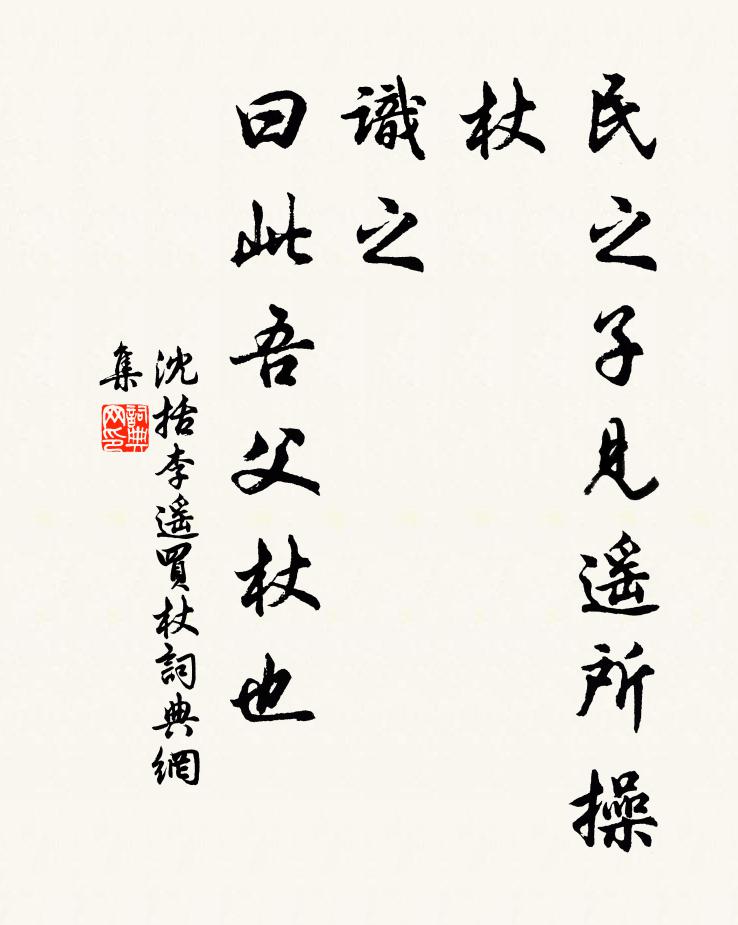 民之子見遥所操
杖
識之
曰此吾父杖也
沈括李遥買杖詞典網
集
詞典
网印